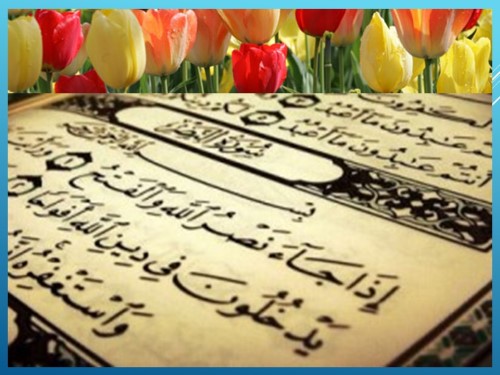 أَنتُمْ عَٰبِدُونَ مَآ أَعْبُدُ
سُورَةُ النَّصْرِ
بِسْمِ
إِذَا جَآءَ نَصْرُ ٱللَّهِ وَٱلْفَتْحُ ١ وَرَأَيْتَ
يَدْخُلُونَ فِى دِينِ ٱللَّهِ أَفْوَاجًا ٢
وَٱسْتَغْفِرْهُ